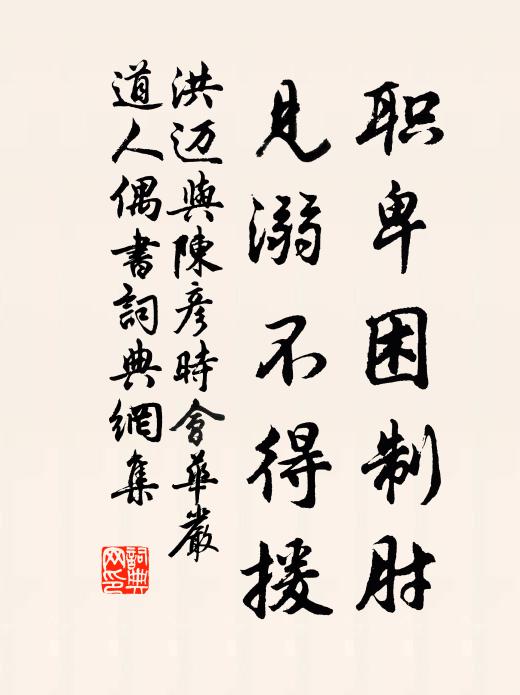 职卑困制肘
见溺不得援
洪迈與陳彦時會華嚴
道人偶書詞典網集
詞典网印